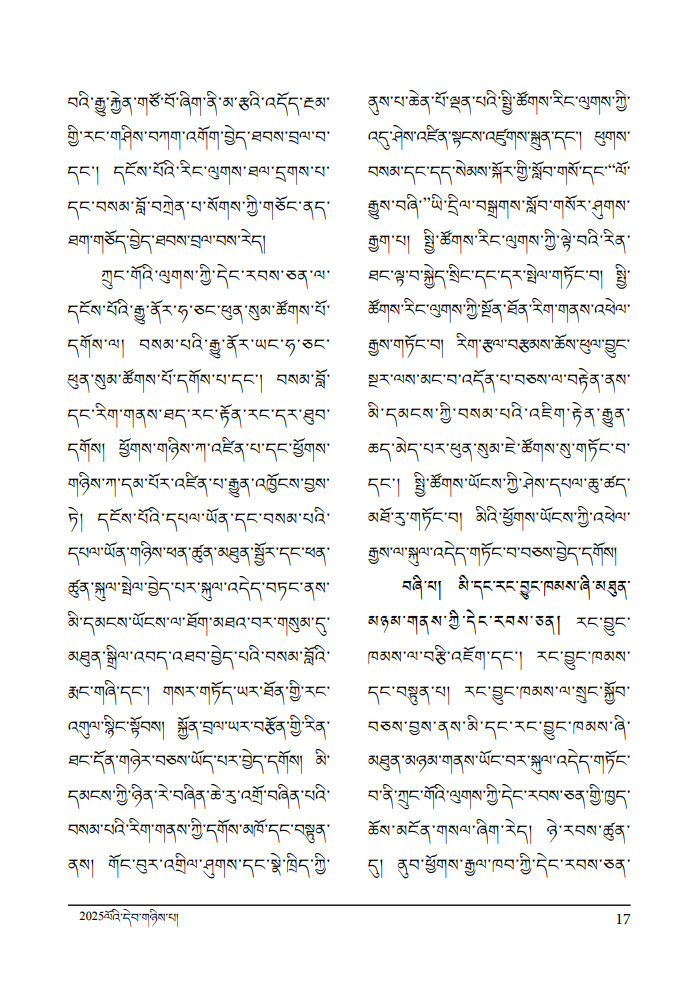 བའི་རྒྱུ་རྐྱེན་གཙོ་བོ་ཞིག་ནི་མ་རྩའི་འདོད་རྔམ་
གྱི་རང་གཤིས་བཀག་འགོག་བྱེད་ཐབས་བྲལ་བ་
དང་། དངོས་པོའི་རིང་ལུགས་ཐལ་དྲགས་པ་
དང་བསམ་བློ་བཀྲེན་པ་སོགས་ཀྱི་གཅོང་ནད་
ཐག་གཅོད་བྱེད་ཐབས་བྲལ་བས་རེད།
ཀྲུང་གོའི་ལུགས་ཀྱི་དེང་རབས་ཅན་ལ་
དངོས་པོའི་རྒྱུ་ནོར་ཧ་ཅང་ཕུན་སུམ་ཚོགས་པོ་
དགོས་ལ། བསམ་པའི་རྒྱུ་ནོར་ཡང་ཧ་ཅང་
ཕུན་སུམ་ཚོགས་པོ་དགོས་པ་དང་། བསམ་བློ་
དང་རིག་གནས་ཐད་རང་རྟོན་རང་དར་ཐུབ་
དགོས། ཕྱོགས་གཉིས་ཀ་འཛིན་པ་དང་ཕྱོགས་
གཉིས་ཀ་དམ་པོར་འཛིན་པ་རྒྱུན་འཁྱོངས་བྱས་
ཏེ། དངོས་པོའི་དཔལ་ཡོན་དང་བསམ་པའི་
དཔལ་ཡོན་གཉིས་ཕན་ཚུན་མཐུན་སྦྱོར་དང་ཕན་
ཚུན་སྐུལ་སྤེལ་བྱེད་པར་སྐུལ་འདེད་བཏང་ནས་
མི་དམངས་ཡོངས་ལ་ཐོག་མཐའ་བར་གསུམ་དུ་
མཐུན་སྒྲིལ་འབད་འཐབ་བྱེད་པའི་བསམ་བློའི་
རྨང་གཞི་དང་། གསར་གཏོད་ཡར་ཐོན་གྱི་རང་
འགུལ་སྙིང་སྟོབས། སྐྱོན་བྲལ་ཡར་བརྩོན་གྱི་རིན་
ཐང་དོན་གཉེར་བཅས་ཡོད་པར་བྱེད་དགོས། མི་
དམངས་ཀྱི་ཉིན་རེ་བཞིན་ཆེ་རུ་འགྲོ་བཞིན་པའི་
བསམ་པའི་རིག་གནས་ཀྱི་དགོས་མཁོ་དང་བསྟུན་
ནས། གོང་བུར་འགྲིལ་ཤུགས་དང་སྣེ་ཁྲིད་ཀྱི་
ནུས་པ་ཆེན་པོ་ལྡན་པའི་སྤྱི་ཚོགས་རིང་ལུགས་ཀྱི་
འདུ་ཤེས་འཛིན་སྟངས་འཛུགས་སྐྲུན་དང་། ཕུགས་
བསམ་དང་དད་སེམས་སྐོར་གྱི་སློབ་གསོ་དང་“ལོ་
རྒྱུས་བཞི་”ཡི་དྲིལ་བསྒྲགས་སློབ་གསོར་ཤུགས་
རྒྱག་པ། སྤྱི་ཚོགས་རིང་ལུགས་ཀྱི་ལྟེ་བའི་རིན་
ཐང་ལྟ་བ་སྐྱེད་སྲིང་དང་དར་སྤེལ་གཏོང་བ། སྤྱི་
ཚོགས་རིང་ལུགས་ཀྱི་སྔོན་ཐོན་རིག་གནས་འཕེལ་
རྒྱས་གཏོང་བ། རིག་རྩལ་བརྩམས་ཆོས་ཕུལ་བྱུང་
སྔར་ལས་མང་བ་འདོན་པ་བཅས་ལ་བརྟེན་ནས་
མི་དམངས་ཀྱི་བསམ་པའི་འཇིག་རྟེན་རྒྱུན་
ཆད་མེད་པར་ཕུན་སུམ་ཇེ་ཚོགས་སུ་གཏོང་བ་
དང་། སྤྱི་ཚོགས་ཡོངས་ཀྱི་ཤེས་དཔལ་ཆུ་ཚད་
མཐོ་རུ་གཏོང་བ། མིའི་ཕྱོགས་ཡོངས་ཀྱི་འཕེལ་
རྒྱས་ལ་སྐུལ་འདེད་གཏོང་བ་བཅས་བྱེད་དགོས།
བཞི་པ། མི་དང་རང་བྱུང་ཁམས་ཞི་མཐུན་
མཉམ་གནས་ཀྱི་དེང་རབས་ཅན། རང་བྱུང་
ཁམས་ལ་བརྩི་འཇོག་དང་། རང་བྱུང་ཁམས་
དང་བསྟུན་པ། རང་བྱུང་ཁམས་ལ་སྲུང་སྐྱོབ་
བཅས་བྱས་ནས་མི་དང་རང་བྱུང་ཁམས་ཞི་
མཐུན་མཉམ་གནས་ཡོང་བར་སྐུལ་འདེད་གཏོང་
བ་ནི་ཀྲུང་གོའི་ལུགས་ཀྱི་དེང་རབས་ཅན་གྱི་ཁྱད་
ཆོས་མངོན་གསལ་ཞིག་རེད། ཉེ་རབས་ཚུན་
དུ། ནུབ་ཕྱོགས་རྒྱལ་ཁབ་ཀྱི་དེང་རབས་ཅན་
2025ལོའི་དེབ་གཉིས་པ།
17